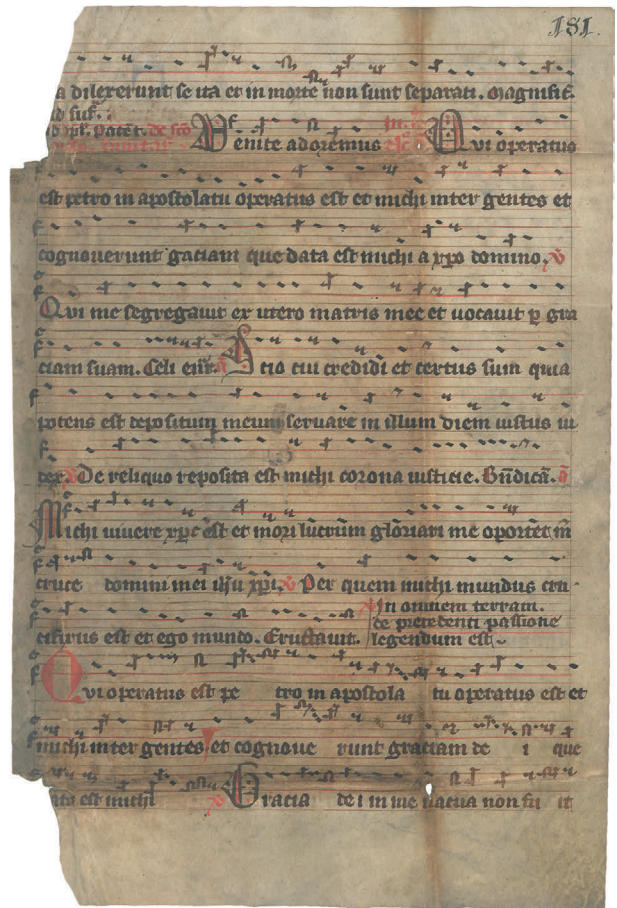 181.
a dilexerunt se ita et in morte non sunt separati. Magnifi͞c.
Venite adoremus Qui operatus
est petro in apostolatu operatus est et michi inter gentes et
cognouerunt gaciam que data est michi a xp̄o domino. V
Qui me segregauit ex utero matris mee et uocauit p gra
ciam suam. Celi enr̄. A Scio cui credidi et certus sum quia
potens est depositum meum seruare in illum diem iustus iu
dex. V De reliquo reposita est michi corona iusticie. Bn̄dicā. A
Michi uiuere xp̄c est et mori lucrum gloriari me oportet in
cruce domini mei ihu xp̄i. V Per quem michi mundus cru
In omnem terram.
de precedenti passione
cifixus est et ego mundo. Eructauit. legendum est
Qui operatus est pe tro in apostola tu operatus est et
michi inter gentes et cognoue runt graciam de i que
est michi V Gracia de i in me uacua non fu it